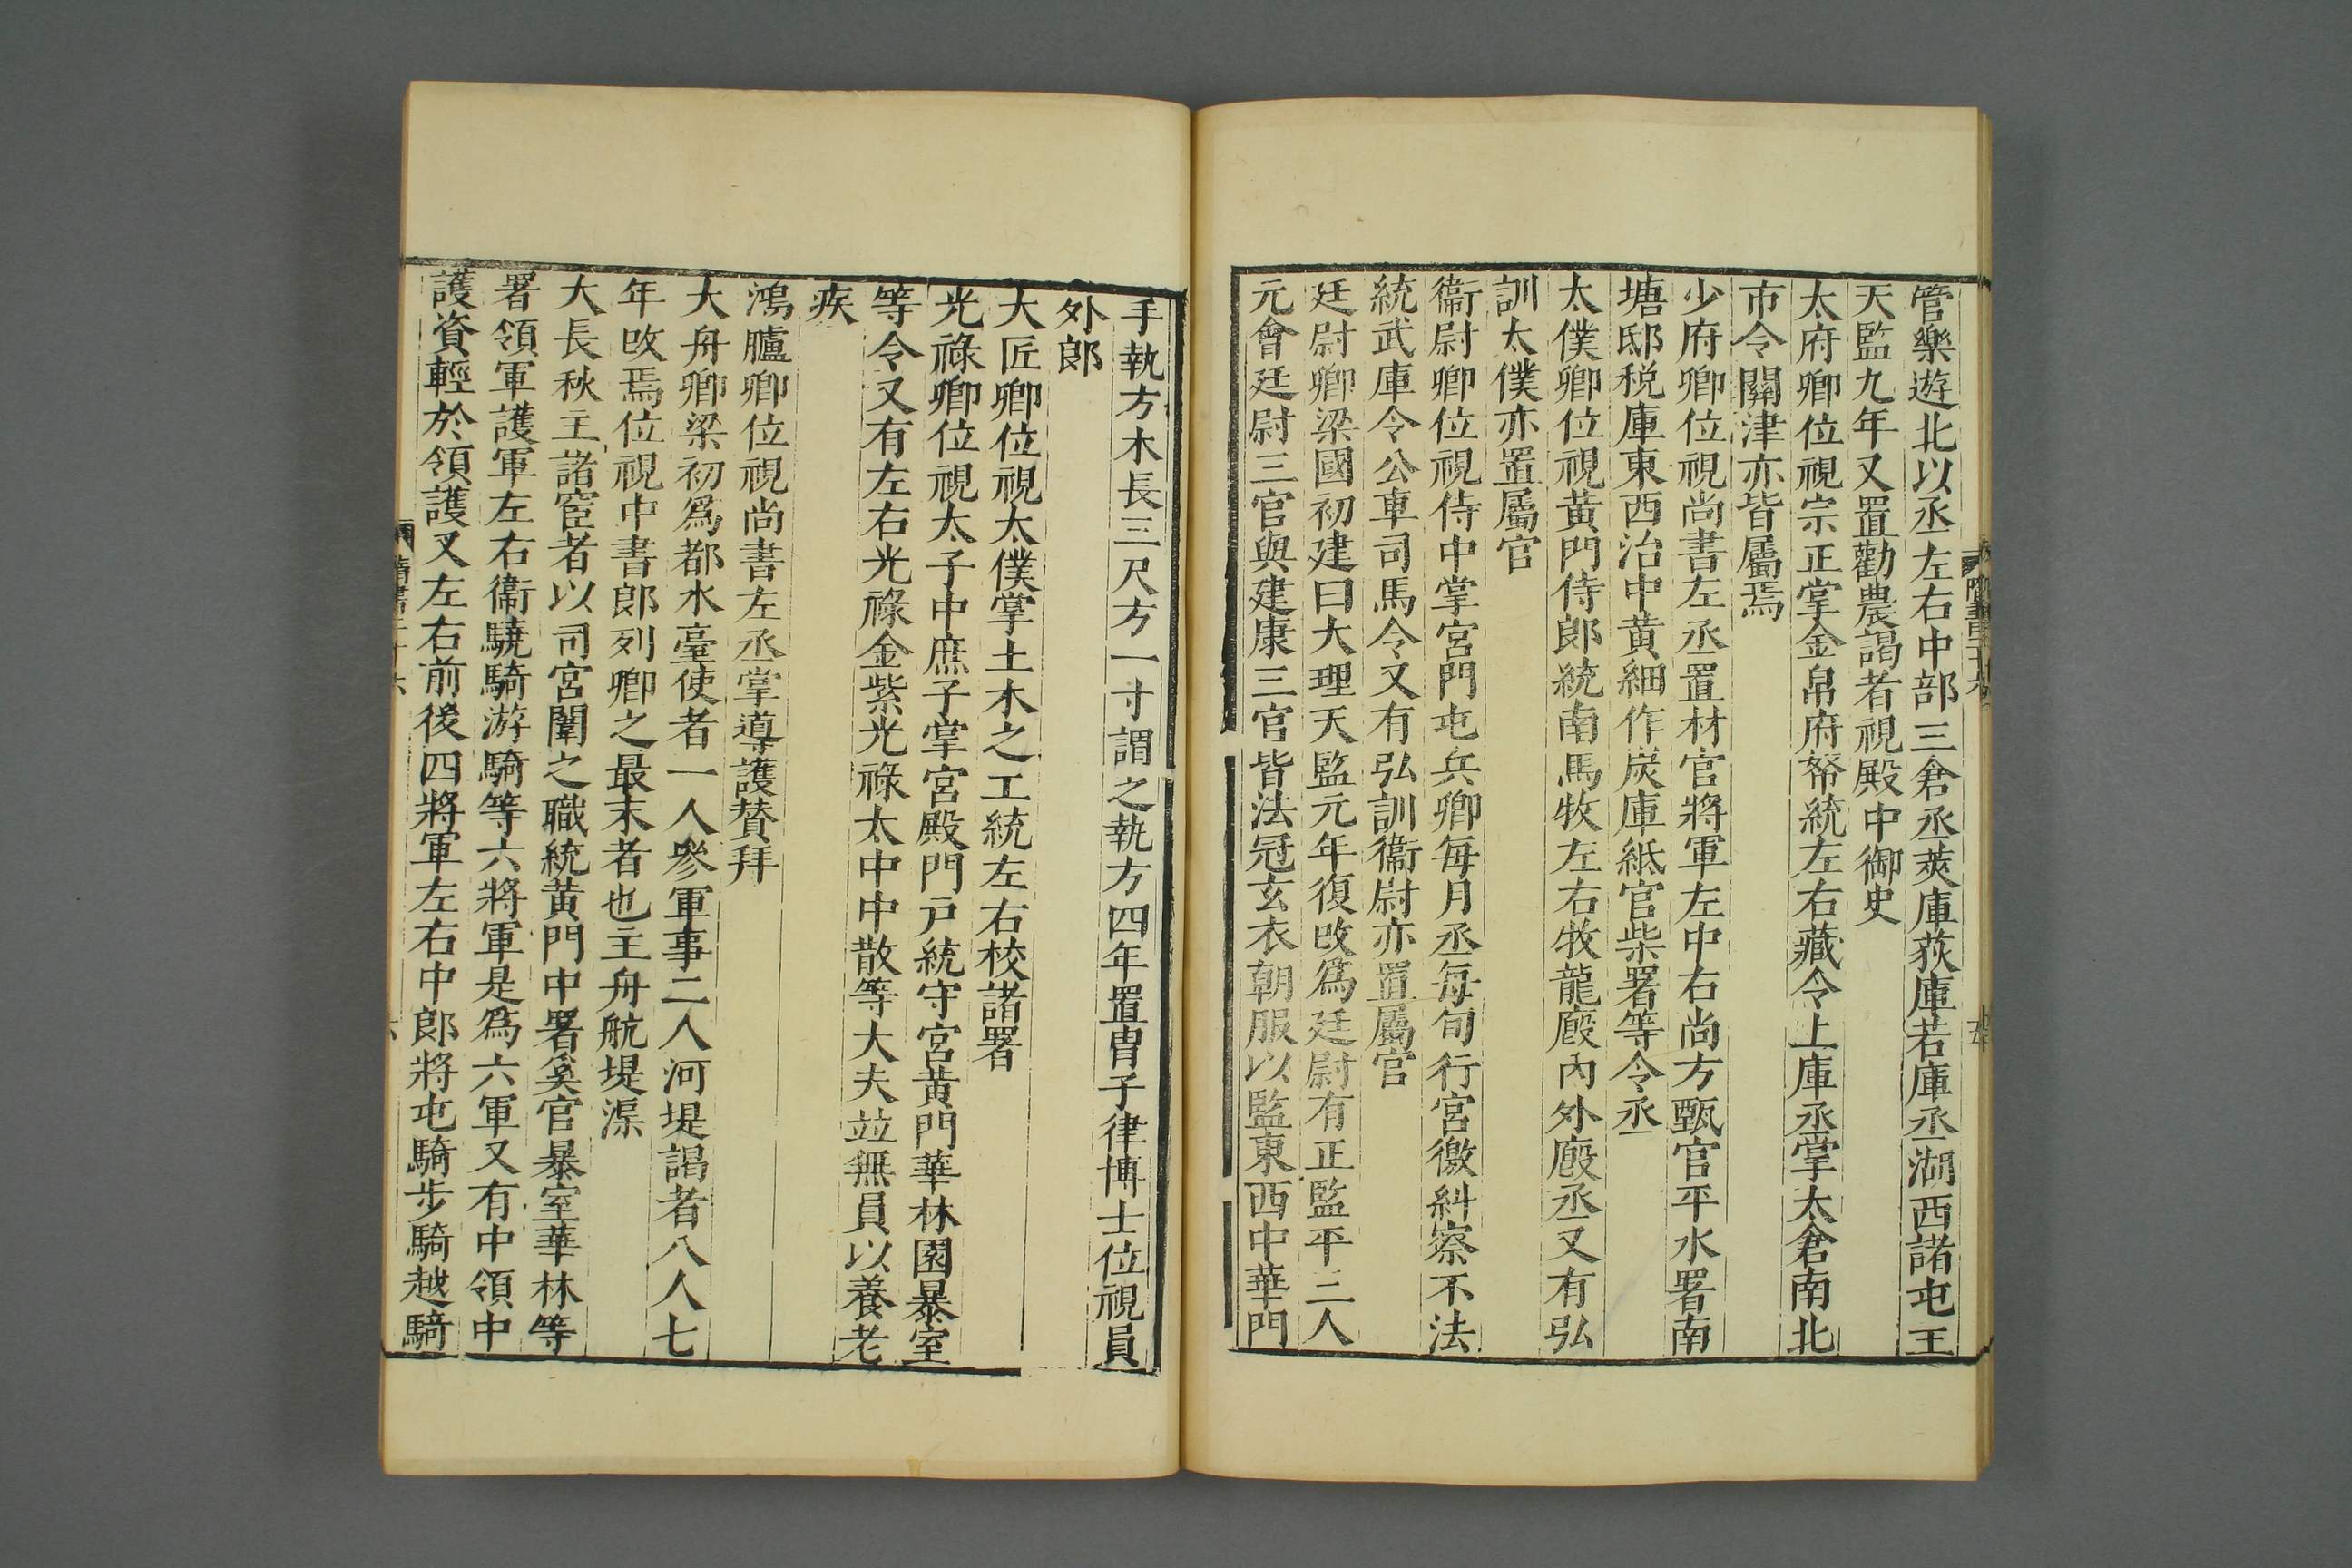 管樂遊北以丞左右中部三倉丞莢庫荻庫若庫丞湖西諸屯王
天監九年又置勸農謁者視殿中御史
太府卿位視宗正掌金帛府帑統左右藏令上庫丞掌太倉南北
市令關津亦皆屬焉
少府卿位視尚書左丞置材官將軍左中右尚方甄官平水署南
塘邸稅庫東西治中黃細作炭庫紙官柴署等令丞
太僕卿位視黃門侍郎統南馬牧左右牧龍廄內外廄丞又有弘
訓太僕亦置屬官
衞尉卿位視侍中掌宮門屯兵卿每月丞每旬行宮徼糾察不法
統武庫令公車司馬令又有弘訓衞尉亦置屬官
廷尉卿梁國初建曰大理天監元年復改爲廷尉有正監平三人
元會廷尉三官與建康三官皆法冠玄衣朝服以監東西中華門
手執方木長三尺方一寸謂之執方四年置冑子律博士位視員
外郎
大匠卿位視太僕掌土木之工統左右校諸署
光祿卿位視太子中庶子掌宮殿門戶統守宮黃門華林園暴室
等令又有左右光祿金紫光祿太中中散等大夫並無員以養老
疾
鴻臚卿位視尚書左丞掌導護贊拜
大舟卿梁初爲都水臺使者一人參軍事二人河堤謁者八人七
年改焉位視中書郎列卿之最末者也主舟航堤渠
大長秋主諸宦者以司宮闈之職統黃門中署奚官暴室華林等
署領軍護軍左右衞驍騎游騎等六將軍是爲六軍又有中領中
護資輕於領護又左右前後四將軍左右中郎將屯騎步騎越騎